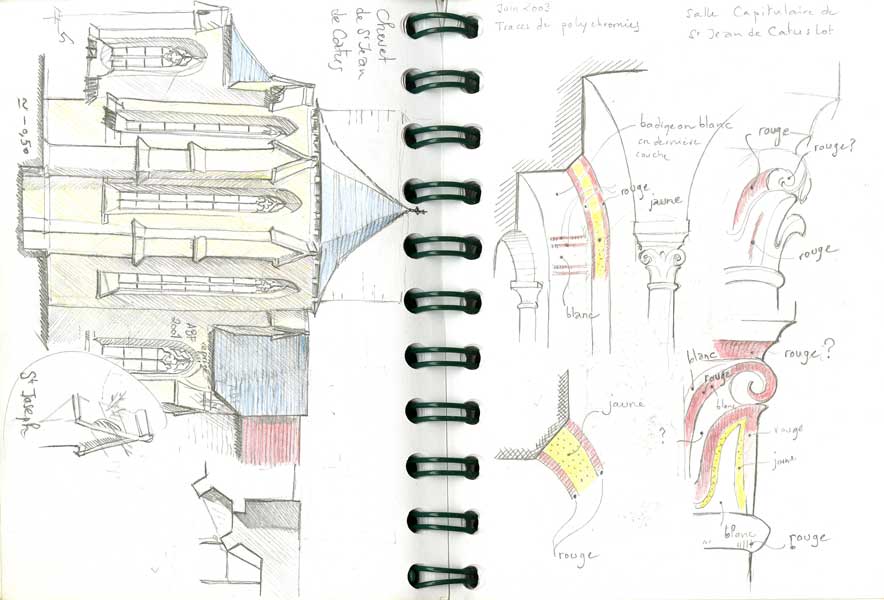 Chevet
de St Jean
de Catus
≃ -0,50
ABF
2001
St Joseph
Juin 2003
Traces de polychromies
Salle Capitulaire de
St Jean de Catus Lot
badigeon blanc
en dernière
couche
rouge
jaune
blanc
rouge
rouge?
rouge
jaune
rouge
blanc
rouge?
rouge
blanc
?
rouge
jaune
blanc
rouge